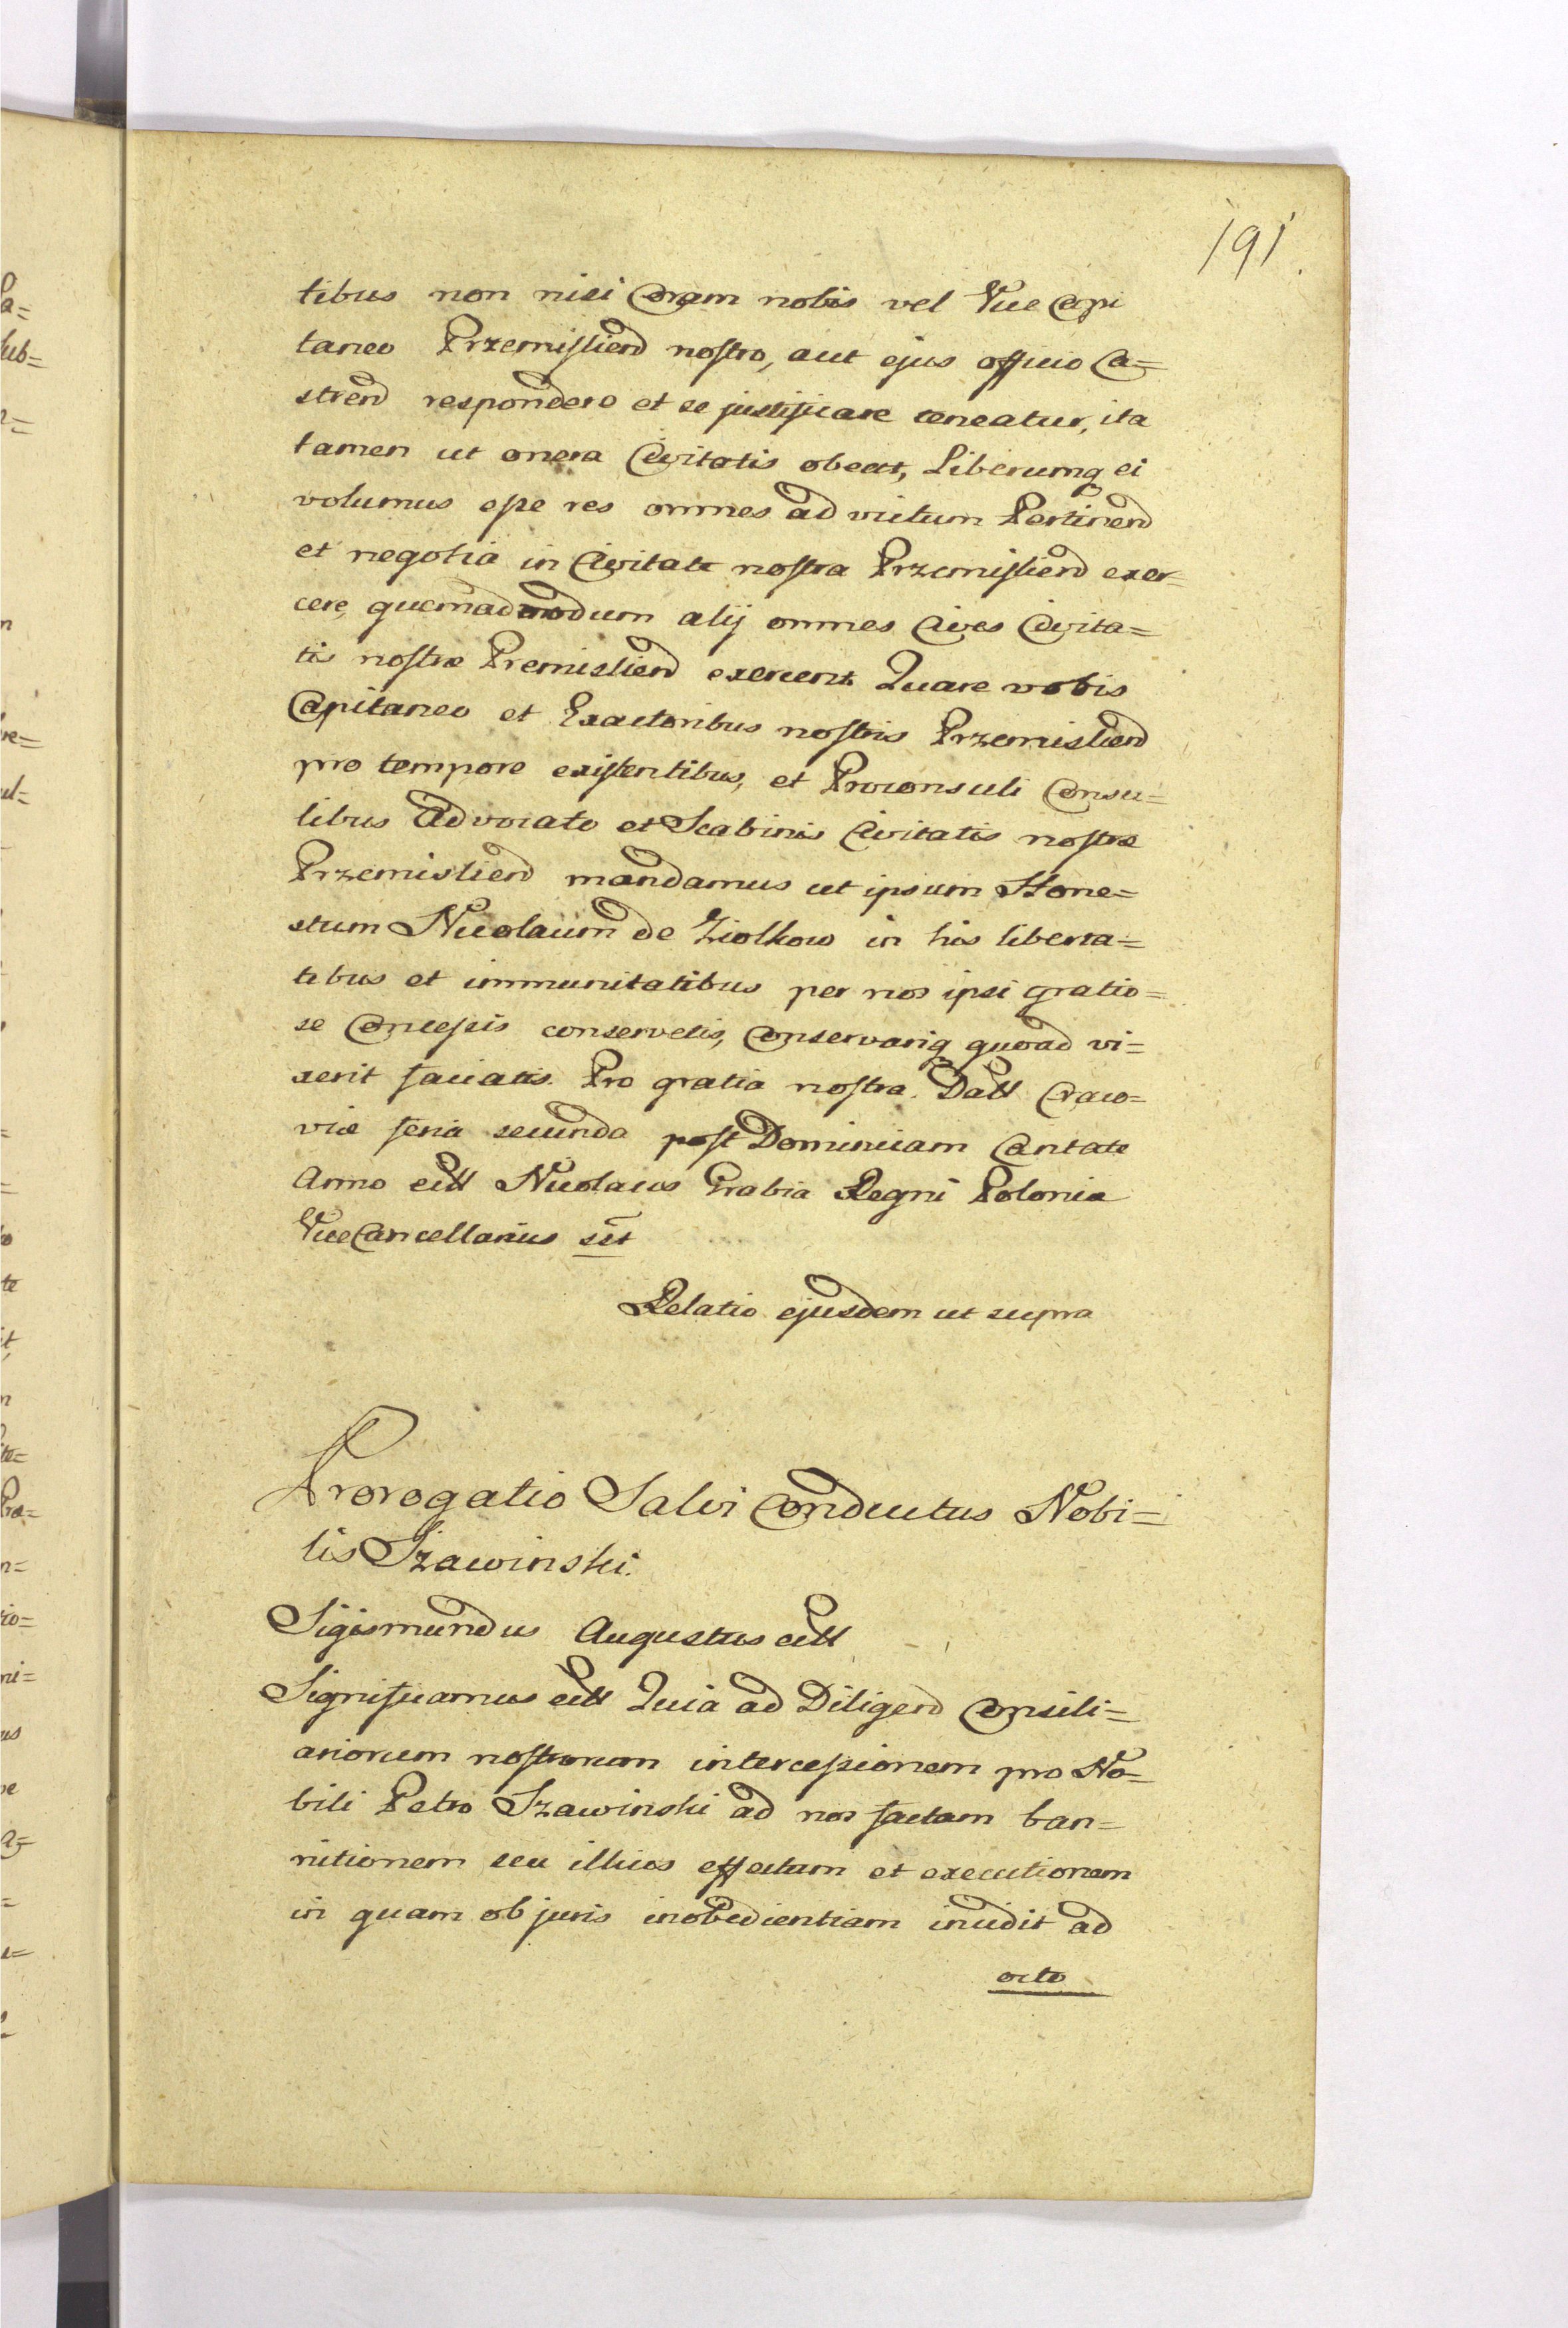 191.
tibus non nisi Coram nobis vel Vice Capi
taneo Przemislien nostro, aut ejus officio Ca=
stren respondere et se justificare teneatur, ita
tamen ut onera Civitatis obeat, Liberumq ei
volumus esse res omnes ad victum Pertinen
et negotia in Civitate nostra Przemislien exer=
cere, quemadmodum alij omnes Cives Civita=
tis nostræ Premislien exercent. Quare vobis
Capitaneo et Exactoribus nostris Przemislien
pro tempore existentibus, et Proconsuli Consu=
libus Advocato et Scabinis Civitatis nostræ
Przemislien mandamus ut ipsum Hone=
stum Nicolaum de Ziolkow in his liberta=
tibus et immunitatibus per nos ipsi gratio=
se Concessis conservetis, Conservariq quoad vi=
xerit faciatis. Pro gratia nostra. Datt Craco=
viæ feria secunda post Dominicam Cantate
Anno ett Nicolaus Grabia Regni Poloniæ
ViceCancellarius sst
Relatio ejusdem ut supra
Prorogatio Salvi Conductus Nobi=
lis Szawinski.
Sigismundus Augustus ett
Significamus ett Quia ad Diligen Consili=
ariorum nostrorum intercessionem pro No=
bili Petro Szawinski ad nos factam ban=
nitionem seu illius effectum et executionem
in quam ob juris inobedientiam incidit ad
octo